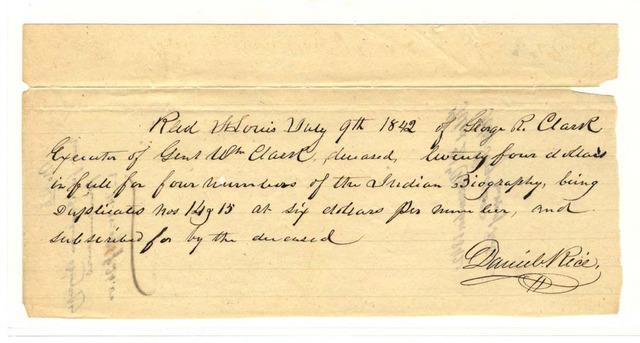 Recd St Louis July 9th 1842 of George R. Clark
Executor of Genl Wm Clark, deceased, twenty four dollars
in full for four numbers of the Indian Biography, being
Duplicates nos 14 & 15 at six dollars per number, and
subscribed for by the deceased
Daniel Rice,